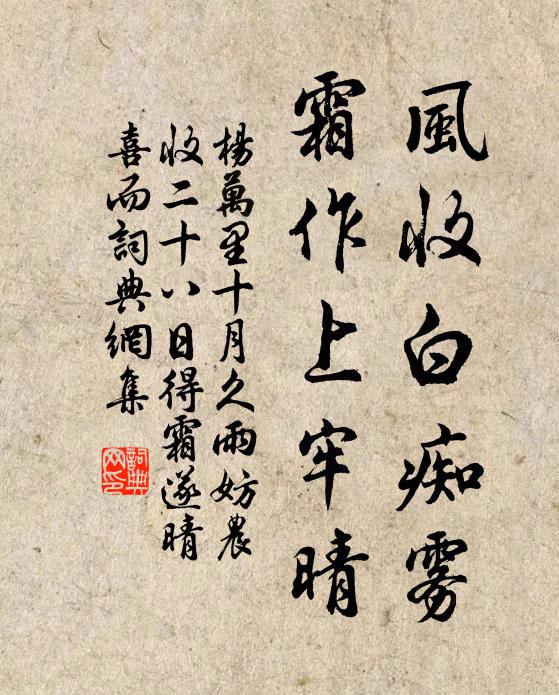 風收白痴雾
霜作上牢晴
楊萬里十月久雨妨農
收二十八日得霜遂晴
喜而詞典網集
詞典網印